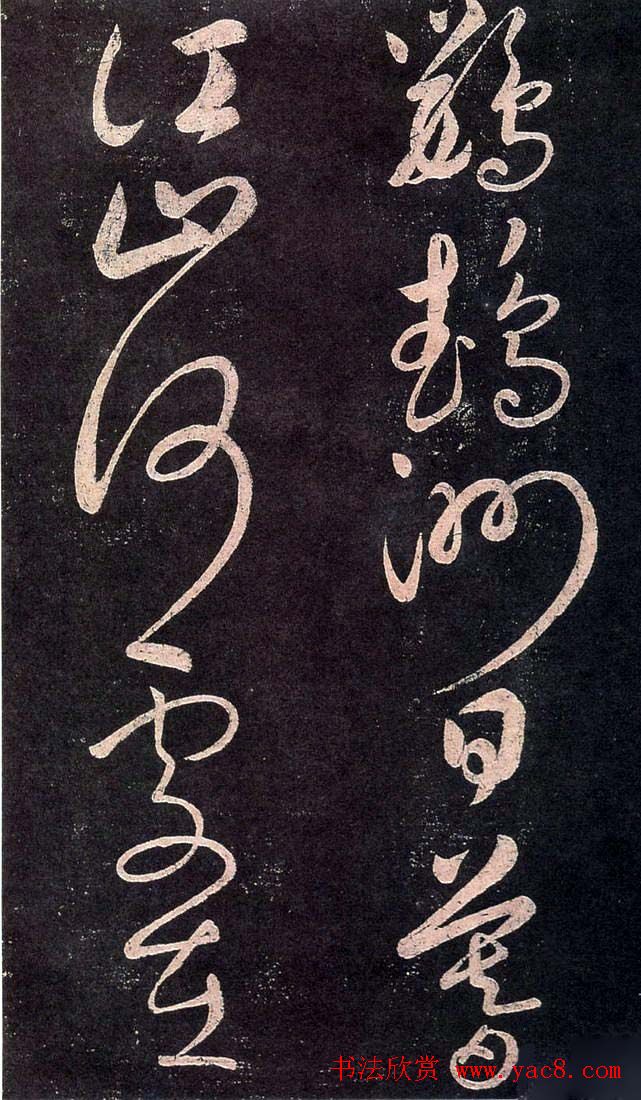 鸚鵡洲日暮
江山何處在
书法欣赏 www.yac8.com